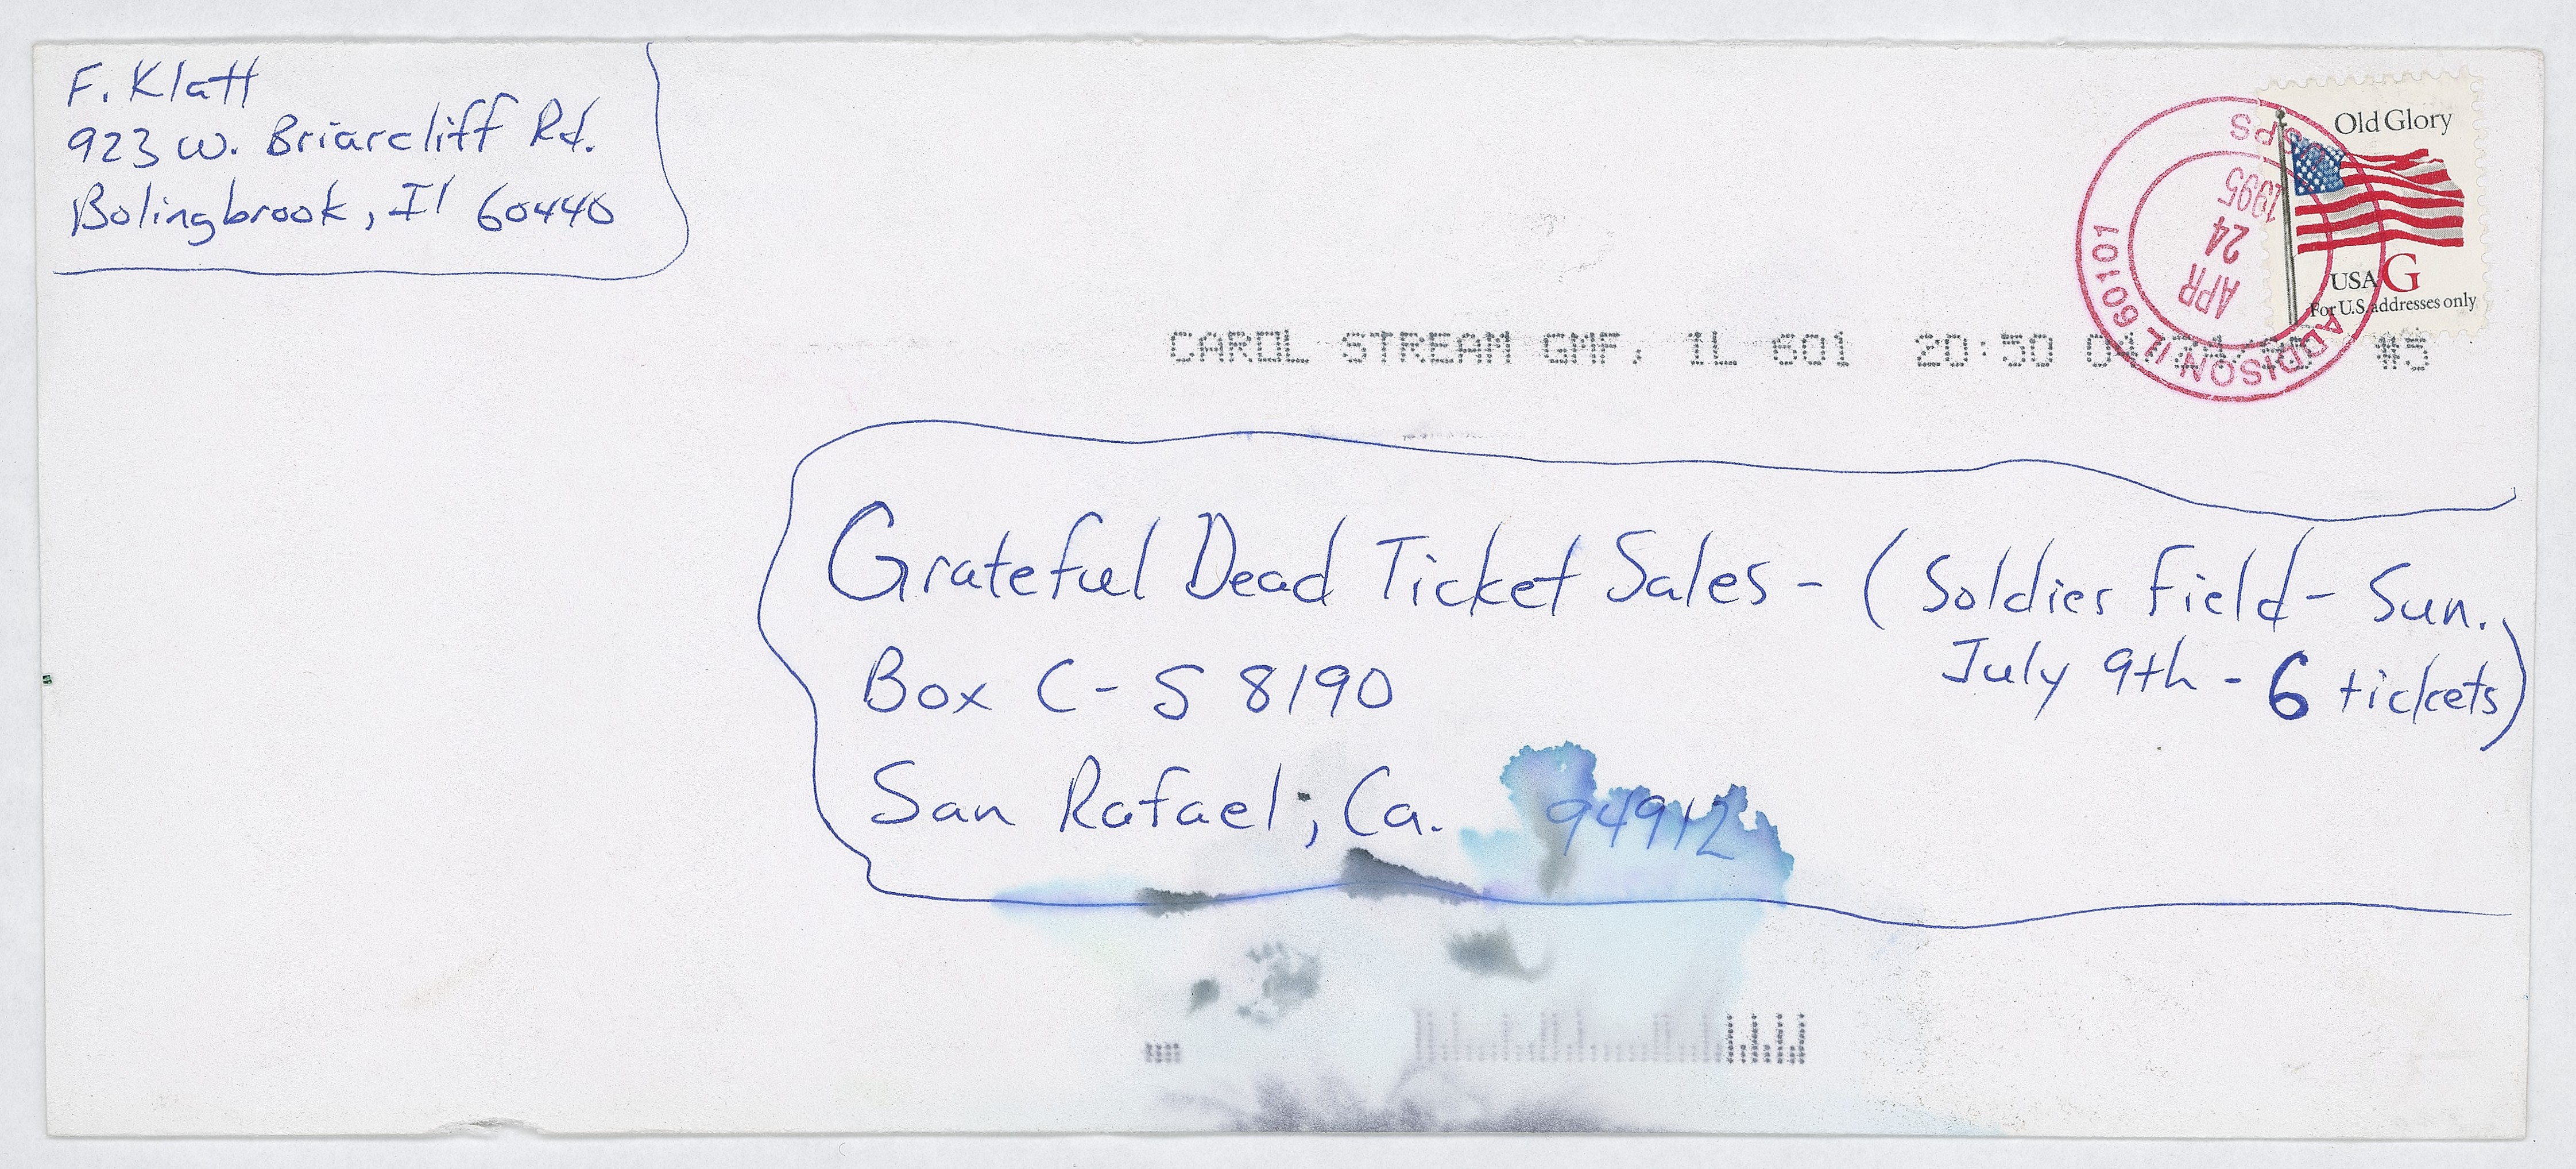 F. Klatt
923 W. Briarcliff Rd.
Bolingbrook, Il 60440
Old Glory
USA G
For U.S. addresses only
USPS
1995
24
APR
ADDISON IL 60101
CAROL STREAM GMF, IL 601 20:50 #5
Grateful Dead Ticket Sales - (Soldier Field - Sun.
July 9th - 6 tickets)
Box C-S 8190
San Rafael, Ca. 94912